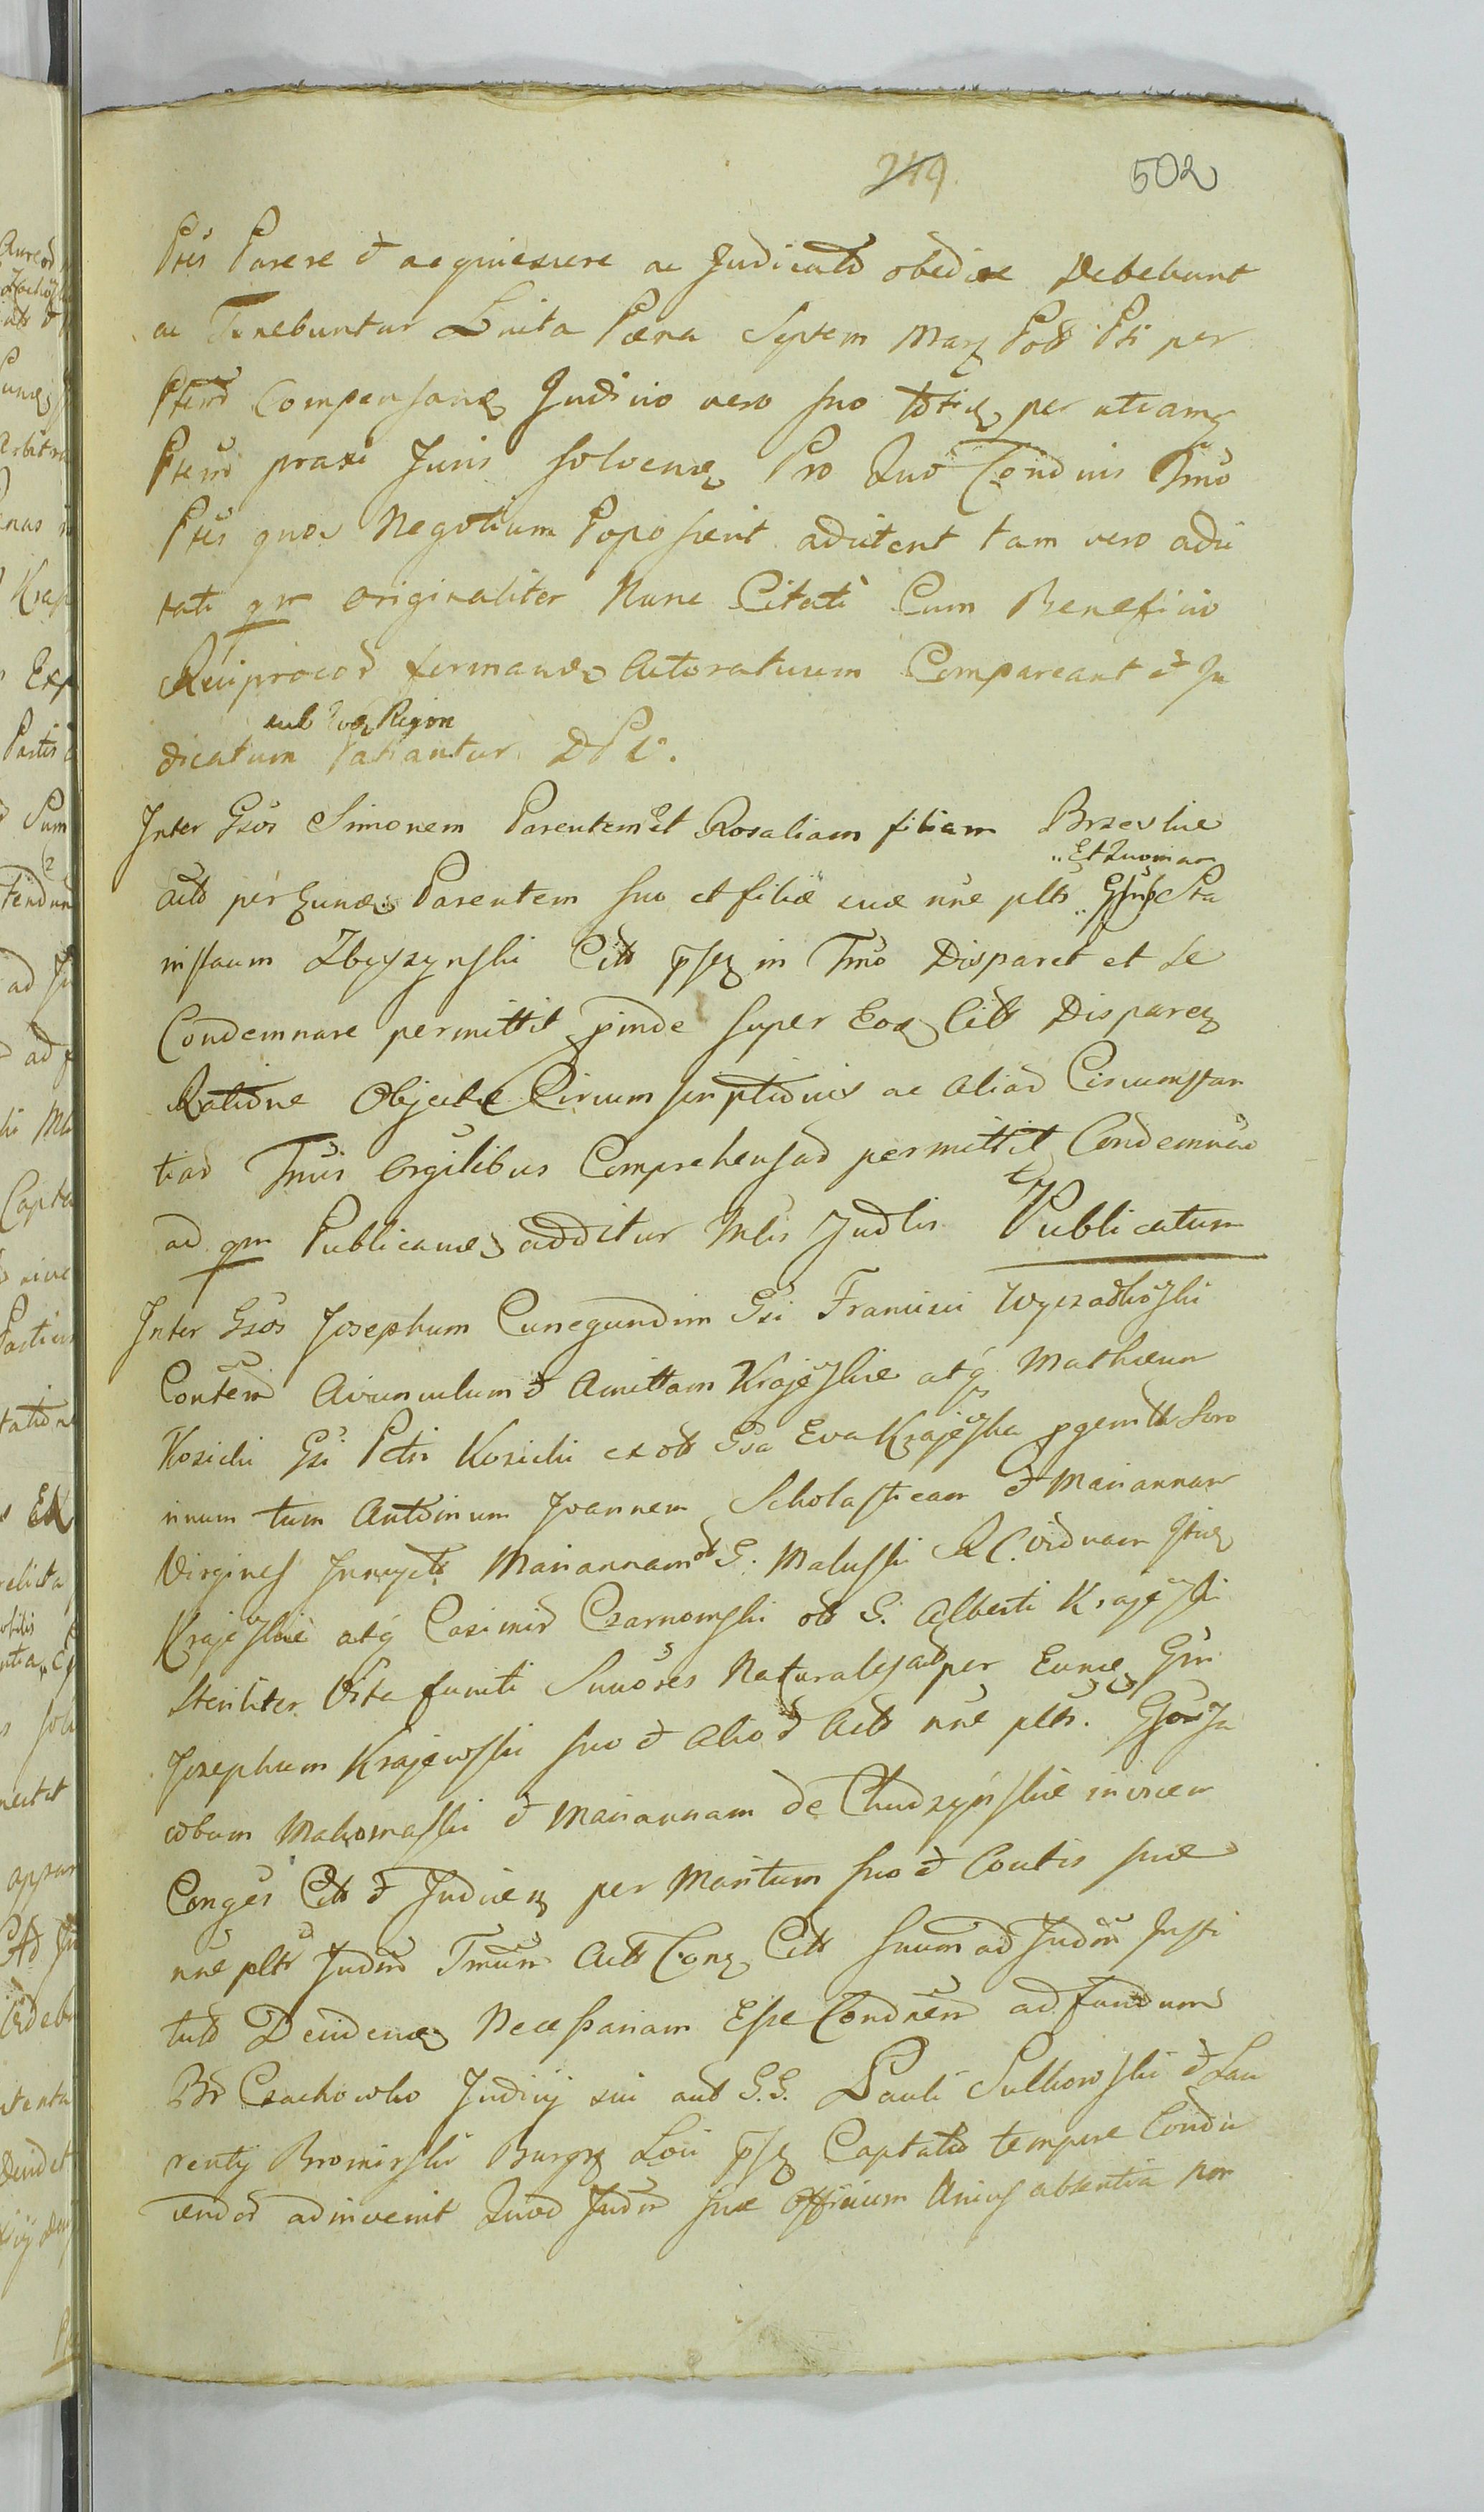 249. 502
Ptes Parere et acquiescere ac Judicato obedire Debebunt
ac Tenebuntur Luita Pæna Septem Marq Pol Pti per
Ptem Compensand Judicio vero suo toties per utramq
Ptem praxi Juris solvend Pro Quo Termino
Ptes quos Negotium Poposcerit adcitent tam vero adci
tati qm originaliter Nunc Citati Cum Beneficio
Reciprocor formand Actoratuum Compareant et Ju
sub Regim
dicatum Patiantur DPL.
Inter Gsos Simonem Parentem et Rosaliam filiam Brzeskie
Et Quoniam
act per Eund Parentem suo et filiæ suæ nne plts Gsus Sta
nislaum Zbyszynski Citt in Tmo Disparet et se
Condemnare permittit proinde super Eod Citt Disparen
Ratione Objectæ Circumscriptionis ac aliar Circumstan
tiar Tmis Orgilibus Comprehensar permittit Condemnão
ad qm Publicand additur Mlis Judlis Publicatum
Inter Gsos Josephum Cunegundim Gsi Francisci Wyczałkoski
Contem Avunculum et Amittam Krajeskie atq Mathæum
Kosicki Gsi Petri Kosicki ex ol Gsa Eva Krajeska pgenitt Soro
rinum tum Antoninum Joannem Scholasticam et Mariannam
Virgines Innupt Mariannam ol G. Maluski RC. viduam
Krajeskie atq Casimir Czarnomski ol G. Alberti Krajeski
Steriliter Vita functi Suuores Naturales act per Eund Gsm
Josephum Krajewski suo et alior act nne plts. Gsos Ja
cobum Makomaski et Mariannam de Chudzyńskie invicem
Conges Citt et Judicen per Maritum suo et Contis suæ
nne plts Judm Tmum act Cong Citt suum ad Judm Insti
tut Deciden Necessariam Esse Condnem ad fundum
Br Czachowko Judicij sui aut G.G. Pauli Sulkowski et Lau
renty Bromirski Burgr Loci Captato tempore Condu
cendor adinvenit Quod Judm suæ Officium Unius absentia non